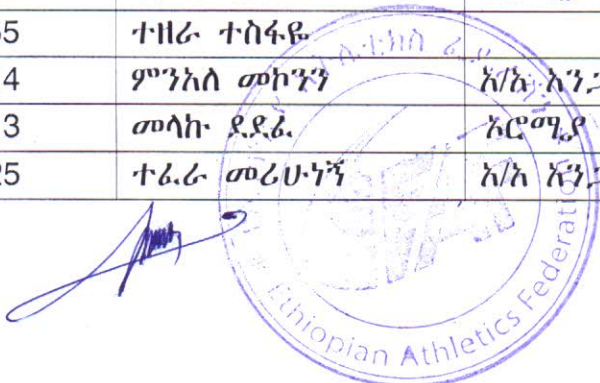 55 ተዘራ ተስፋዬ
4 ምንአለ መኮንን አ/አ አን
3 መላኩ ደደፊ ኦሮሚያ
25 ተፈራ መሪሁነኝ አ/አ አን
Ethiopian Athletics Federation